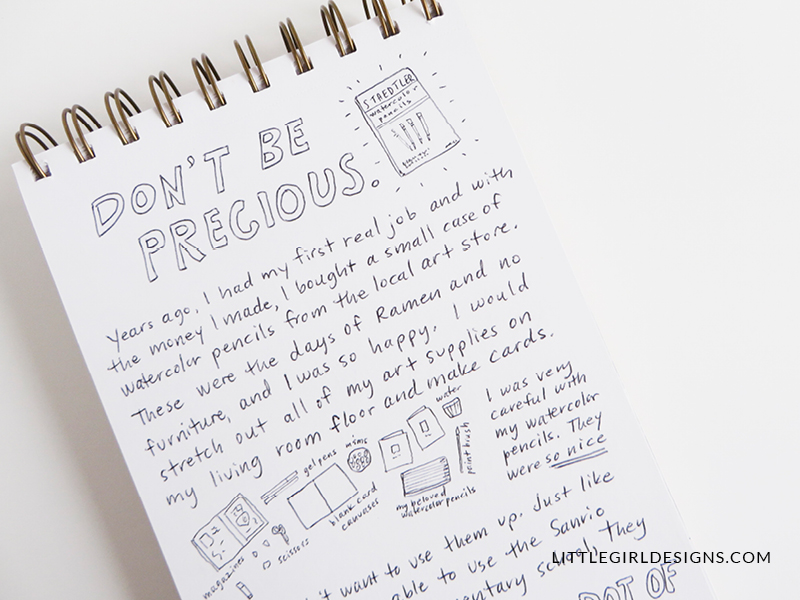 STAEDTLER
watercolor
pencils
DON'T BE
PRECIOUS.
Years ago, I had my first real job and with
the money I made, I bought a small case of
watercolor pencils from the local art store.
These were the days of Ramen and no
furniture, and I was so happy. I would
stretch out all of my art supplies on
my living room floor and make cards.
water
paint brush
gel pens
mints
blank card
canvases
my beloved
watercolor pencils
magazines
scissors
I was very
careful with
my watercolor
pencils. They
were so nice
want to use them up. Just like
able to use the Sanrio
mentary school. They
DOT OF
LITTLEGIRLDESIGNS.COM